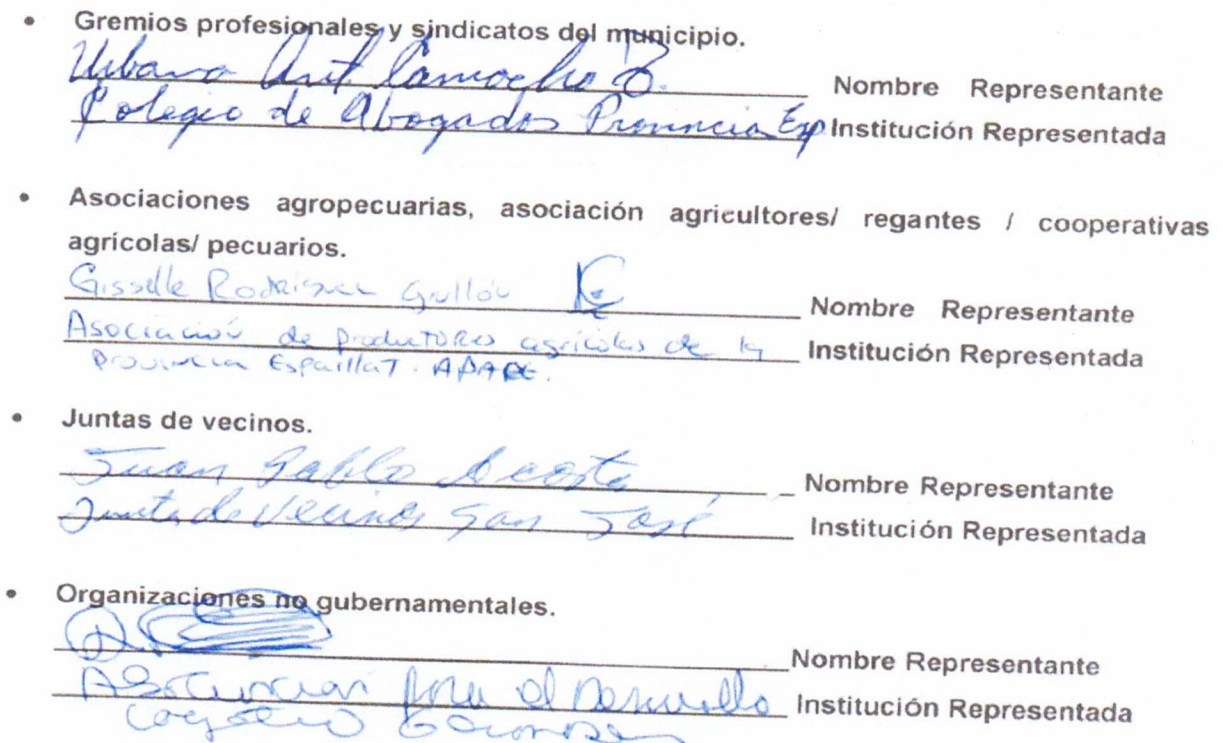 • Gremios profesionales y sindicatos del municipio.
Urbano Ant. Camacho B. Nombre Representante
Colegio de Abogados Provincia Esp Institución Representada
• Asociaciones agropecuarias, asociación agricultores/ regantes / cooperativas
agrícolas/ pecuarios.
Gisselle Rodriguez Grullón Nombre Representante
Asociación de productores agricolas de la Institución Representada
Provincia Espaillat. APAPE.
• Juntas de vecinos.
Juan Pablo Acosta Nombre Representante
Junta de Vecinos San José Institución Representada
• Organizaciones no gubernamentales.
Nombre Representante
Asociacion para el Desarrollo Institución Representada